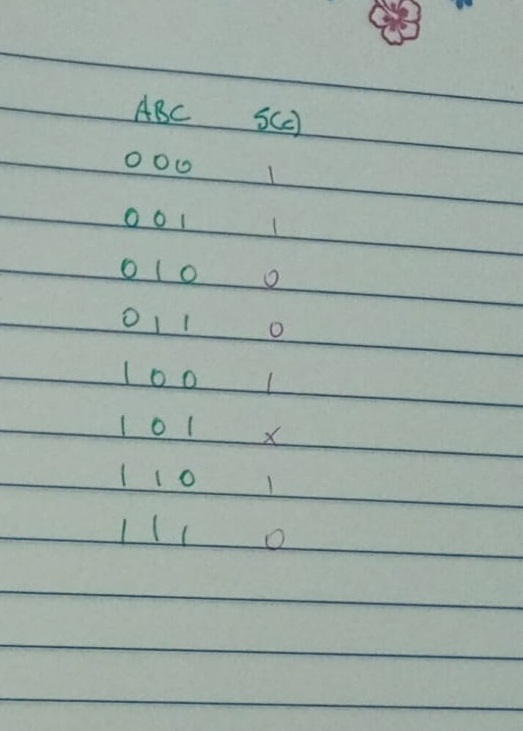 ABC S(c)
000 1
001 1
010 0
011 0
100 1
101 x
110 1
111 0